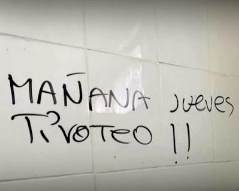 MAÑANA JUEVES
TIROTEO !!